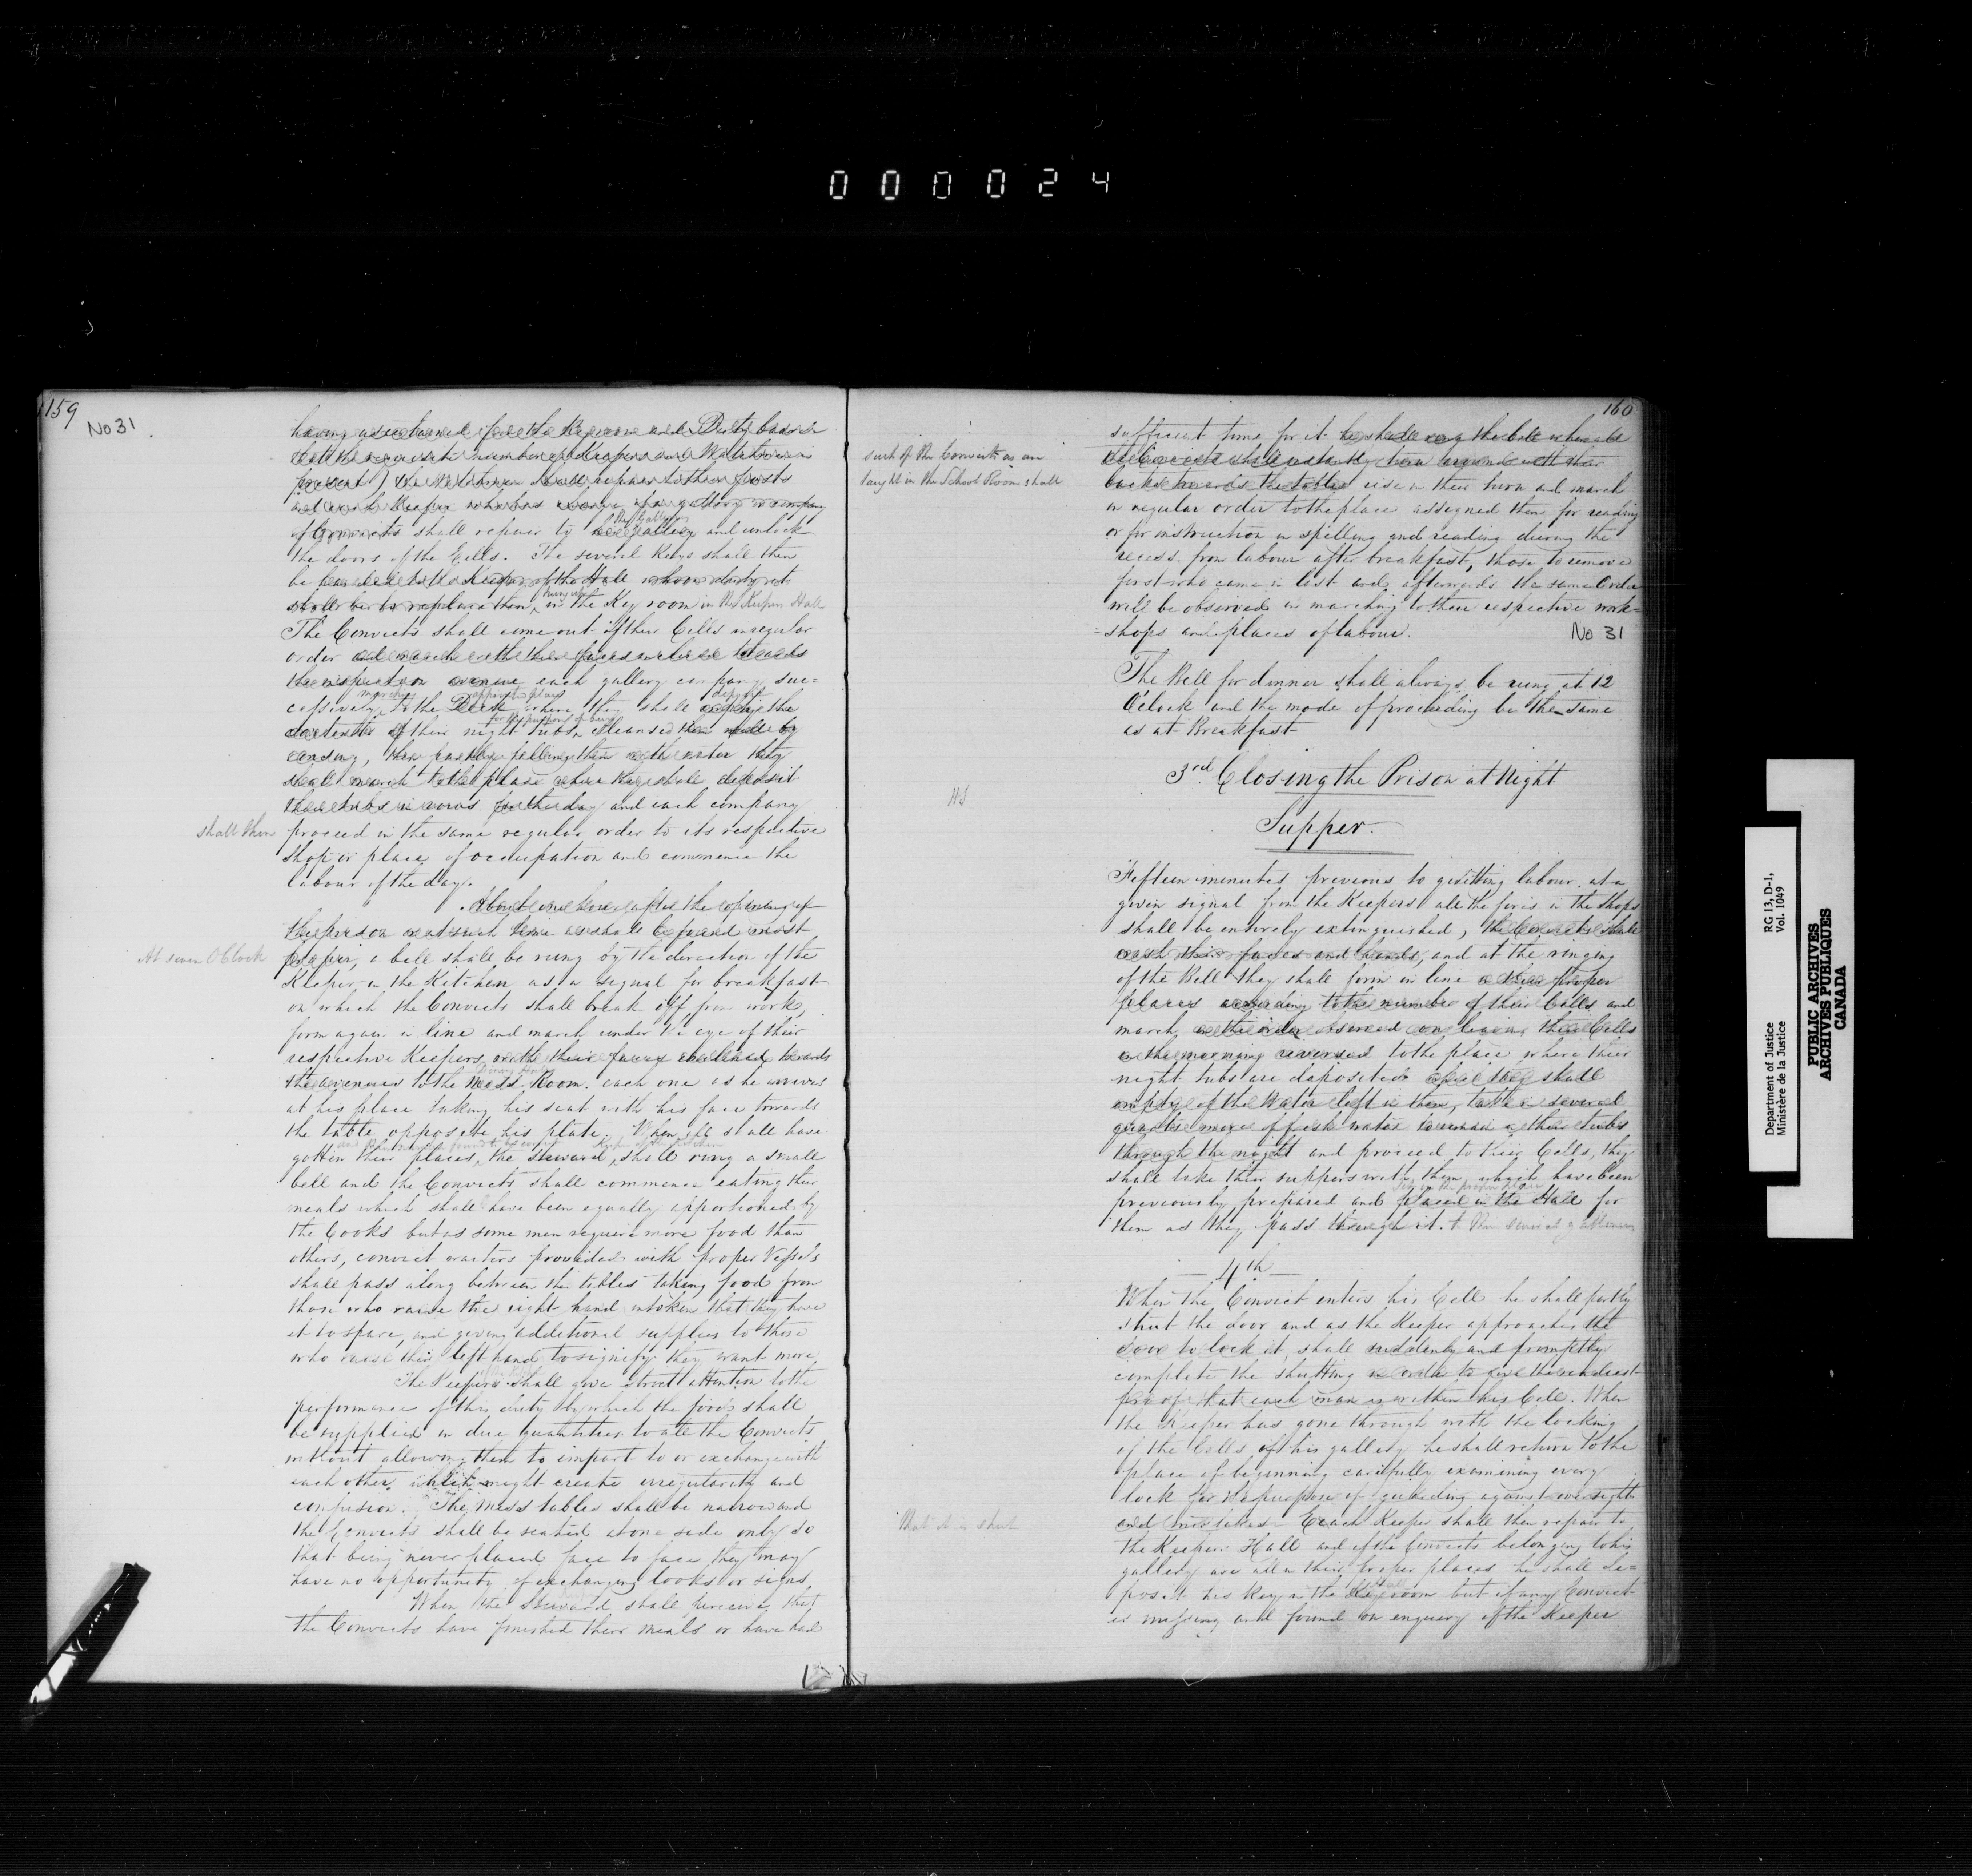 000024
159
No 31
having ascertained from the Register and Duty book
that the requisite number of Keepers and Watchmen is
present) the Watchmen shall repair to their posts
and each Keeper who has charge of a gallery or company
of Convicts shall repair to his gallery and unlock
the Gallery
the doors of the Cells. The several Keys shall then
be handed to the Keeper of the Hall whose duty it
shall be to replace them, in the Key room in the Keepers Hall
hung up
The Convicts shall come out of their Cells in regular
order and march with their faces inclined towards
the inspection avenue each gallery company suc=
cessively to the Dock where they shall empty the
marching
appointed place
deposit
contents of their night tubs, cleansed them well by
for the purpose of being
rinsing, then partly filling them with water they
shall march to the place where they shall deposit
their tubs in rows for the day and each company
shall then
proceed in the same regular order to its respective
shop or place of occupation and commence the
labour of the day.
About one hour after the opening of
the prison or at such time as shall be found most
At seven O'Clock
proper, a bell shall be rung by the direction of the
Keeper in the Kitchen as a signal for breakfast
on which the Convicts shall break off from work,
form again in line and march under the eye of their
respective Keepers with their faces inclined towards
the avenues to the Mess Room. each one as he arrives
Dining Hall
at his place taking his seat with his face towards
the table opposite his plate. When all shall have
gotten their places, the Steward, shall ring a small
bell and the Convicts shall commence eating their
meals which shall have been equally apportioned by
the Cooks but as some men require more food than
others, convict waiters provided with proper Vessels
shall pass along between the tables taking food from
those who raise the right hand in token that they have
it to spare, and giving additional supplies to those
who raise their left hand to signify they want more
The Keepers shall give strict attention to the
performance of this duty by which the food shall
be supplied in due quantities to all the Convicts
without allowing them to impart to or exchange with
each other, which might create irregularity and
confusion. The mess tables shall be narrow and
the Convicts shall be seated at one side only so
that being never placed face to face they may
have no opportunity of exchanging looks or signs
When the Steward shall perceive that
the Convicts have finished their meals or have had
160
sufficient time for it he shall ring the bell when all
the Convicts shall instantly turn around with their
such of the Convicts as are
taught in the School Room shall
backs towards the tables rise in their turn and march
in regular order to the place assigned them for reading
or for instruction in spelling and reading during the
recess from labour after breakfast, those to remove
first who came in last and afterwards the same Order
will be observed in marching to their respective work=
=shops and places of labour.
No 31
The Bell for dinner shall always be rung at 12
O'clock and the mode of proceeding be the same
as at Breakfast
3rd Closing the Prison at Night
Supper.
Fifteen minutes previous to quitting labour at a
given signal from the Keepers all the fires in the Shops
shall be entirely extinguished, the Convicts shall
wash their faces and hands, and at the ringing
of the Bell they shall form in line in their proper
places according to the number of their Cells and
march in the order observed on leaving their Cells
in the morning reversed to the place where their
night tubs are deposited when they shall
empty of the Water left in them, take in several
quarts more of fresh water to remain in their tubs
through the night and proceed to their Cells, they
shall take their suppers with them which have been
previously prepared and placed in the Hall for
them as they pass through it. to their several galleries
4th
When the Convict enters his Cell he shall partly
shut the door and as the Keeper approaches the
door to lock it, shall suddenly and promptly
complete the shutting in order to give the readiest
proof that each man is within his Cell. When
the Keeper has gone through with the locking
of the Cells of his gallery he shall return to the
place of beginning carefully examining every
lock for the purpose of guarding against oversights
that it is shut
and mistakes. Each Keeper shall then repair to
the Keepers Hall and if the Convicts belonging to his
gallery are all in their proper places he shall de=
posit his key in the Key room but if any Convict
is missing and found on enquiry of the Keeper
Department of Justice
Ministère de la Justice
RG 13, D-1,
Vol. 1049
PUBLIC ARCHIVES
ARCHIVES PUBLIQUES
CANADA